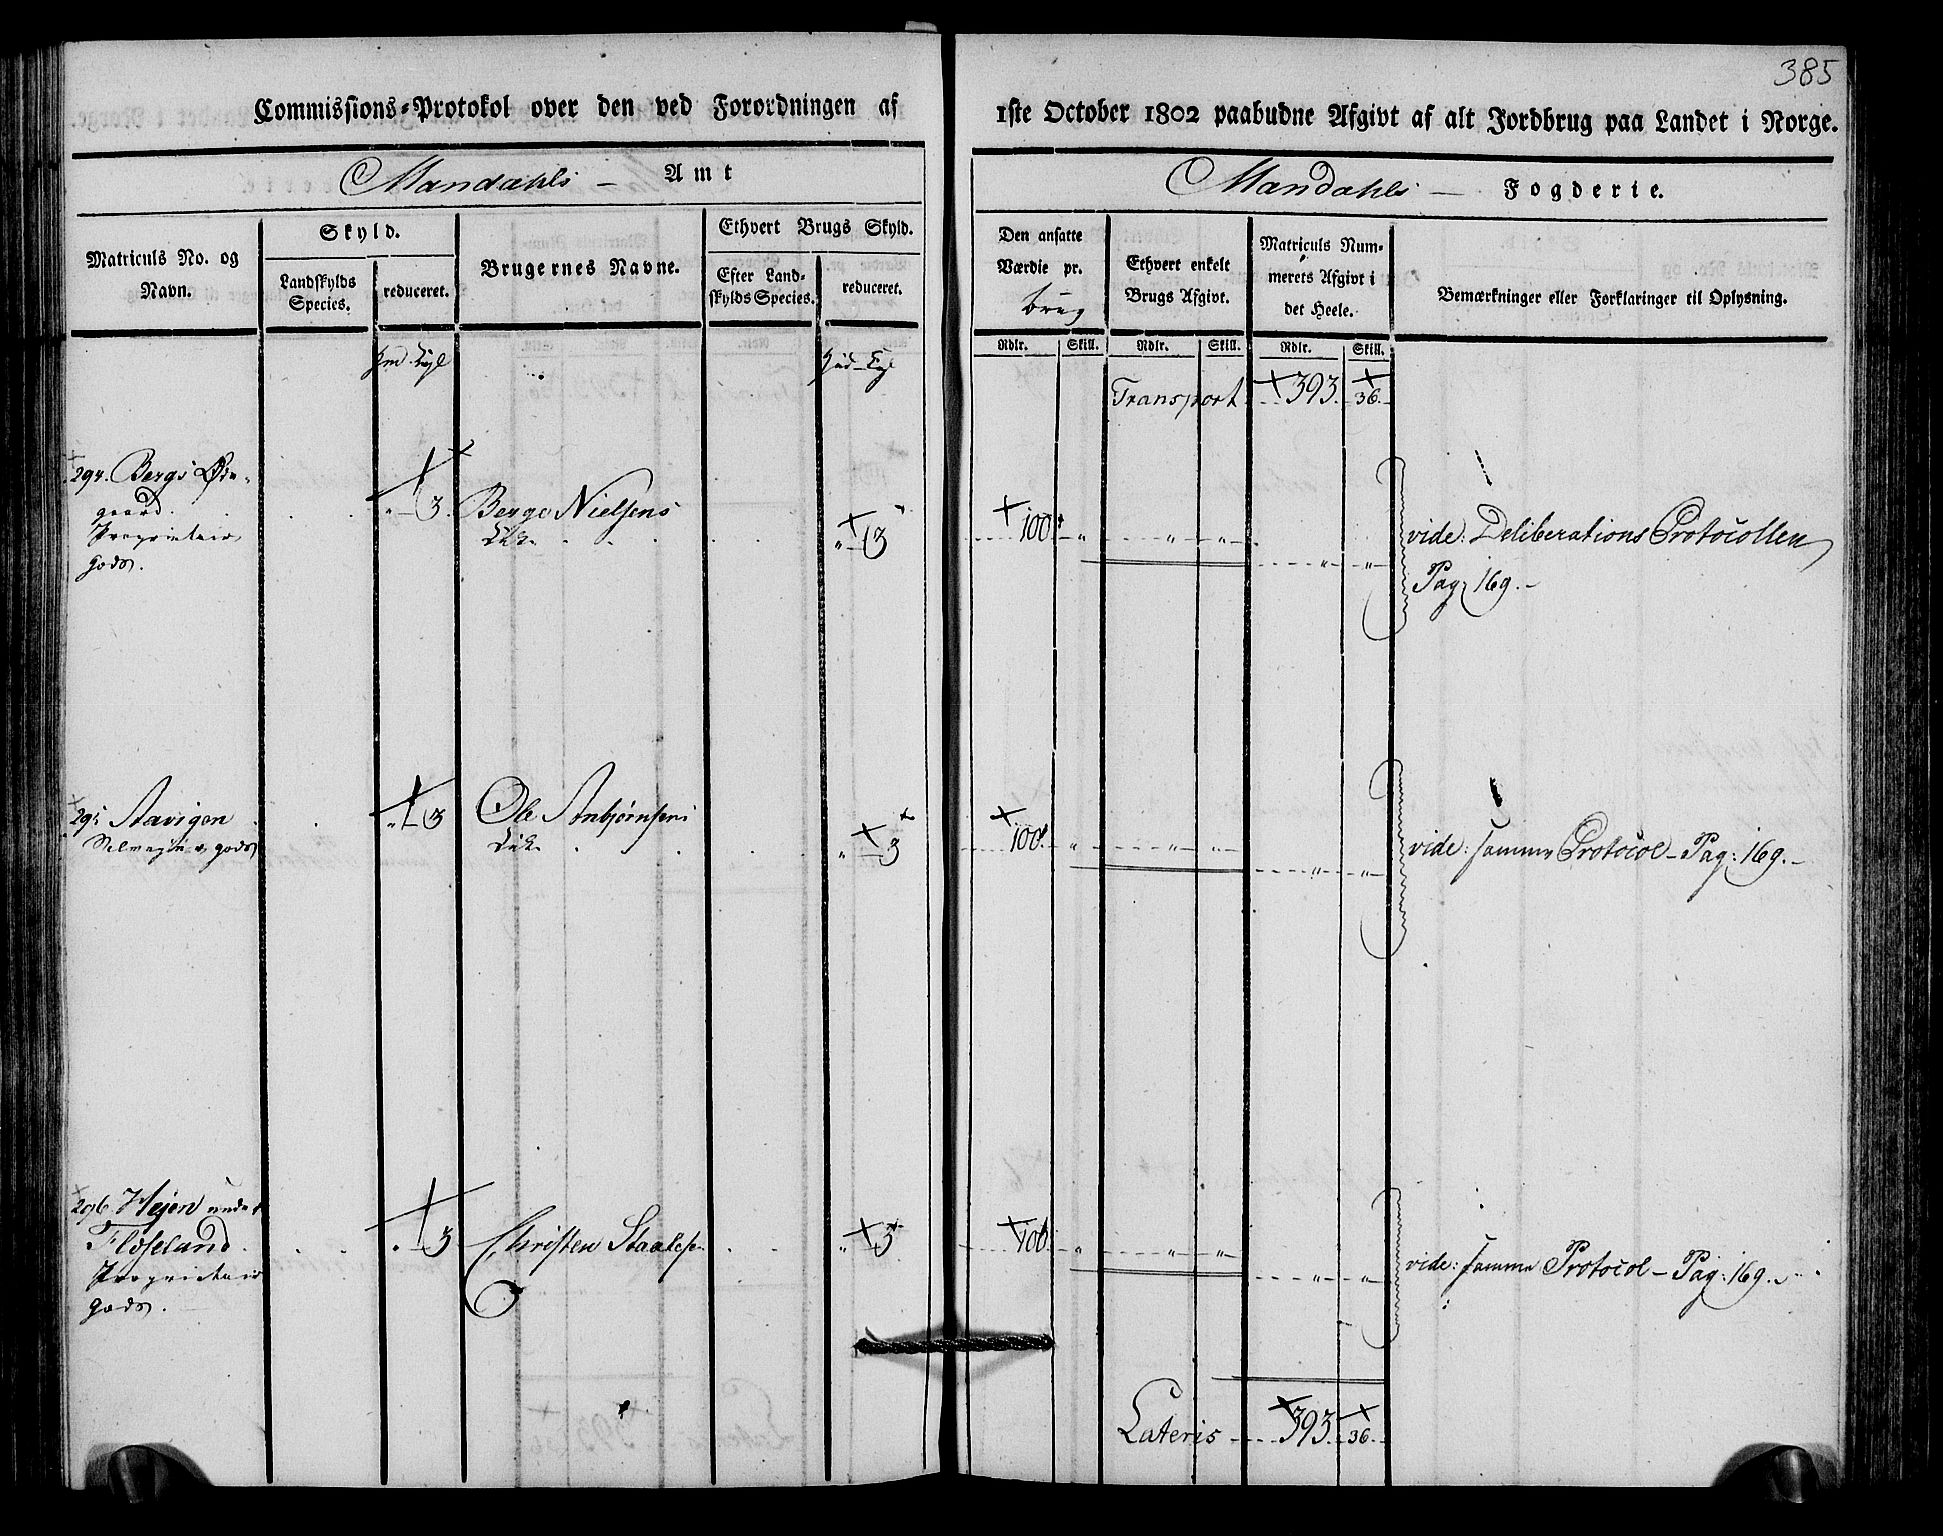 385
Commissions-Protokol over den ved Forordningen af 1ste October 1802 paabudne Afgivt af alt Jordbrug paa Landet i Norge.
Mandahls – Amt
Mandahls – Fogderie.
Matriculs No. og Navn.
Skyld.
Landskylds Species.
reduceret.
Brugernes Navne.
Ethvert Brugs Skyld.
Efter Landskylds Species.
reduceret.
Den ansatte Værdie pr. brug
Ethvert enkelt Brugs Afgivt.
Matriculs Nummerets Afgivt i det Heele.
Bemærkninger eller Forklaringer til Oplysning.
Rdlr. Skill. Rdlr. Skill. Rdlr. Skill.
Transport 393. 36.
294. Bergs Øde-
gaard.
Proprietair
gods.
" 3. Berge Nielsens
" 3 100 " " " " "
vide: Deliberations Protocollen
Pag 169.–
295 Aavigen
Selveyer gods
" 3 Ole Anbjørnsens
" 3 100. " " " " "
vide: samme Protocol – Pag: 169.–
296 Hejen under
Floseland.
Proprietair
gods.
" 3 Christen Staalesen
" 3 100. " " " " "
vide: samme Protocol – Pag: 169.
Lateris 393. 36.